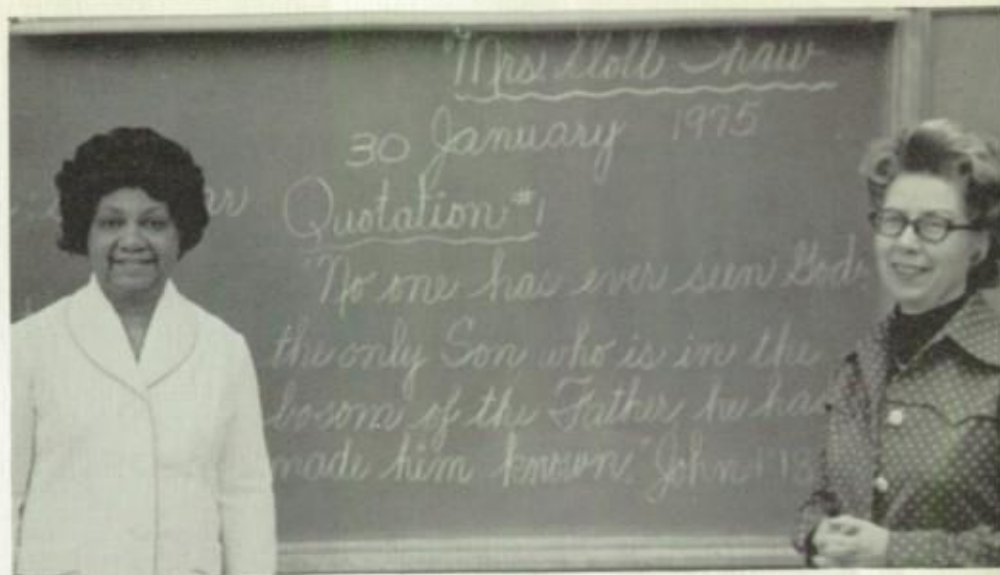 "Mrs. Holl Shaw
30 January 1975
Quotation #1
"No one has ever seen God;
the only Son who is in the
bosom of the Father, he has
made him known." John 1:18